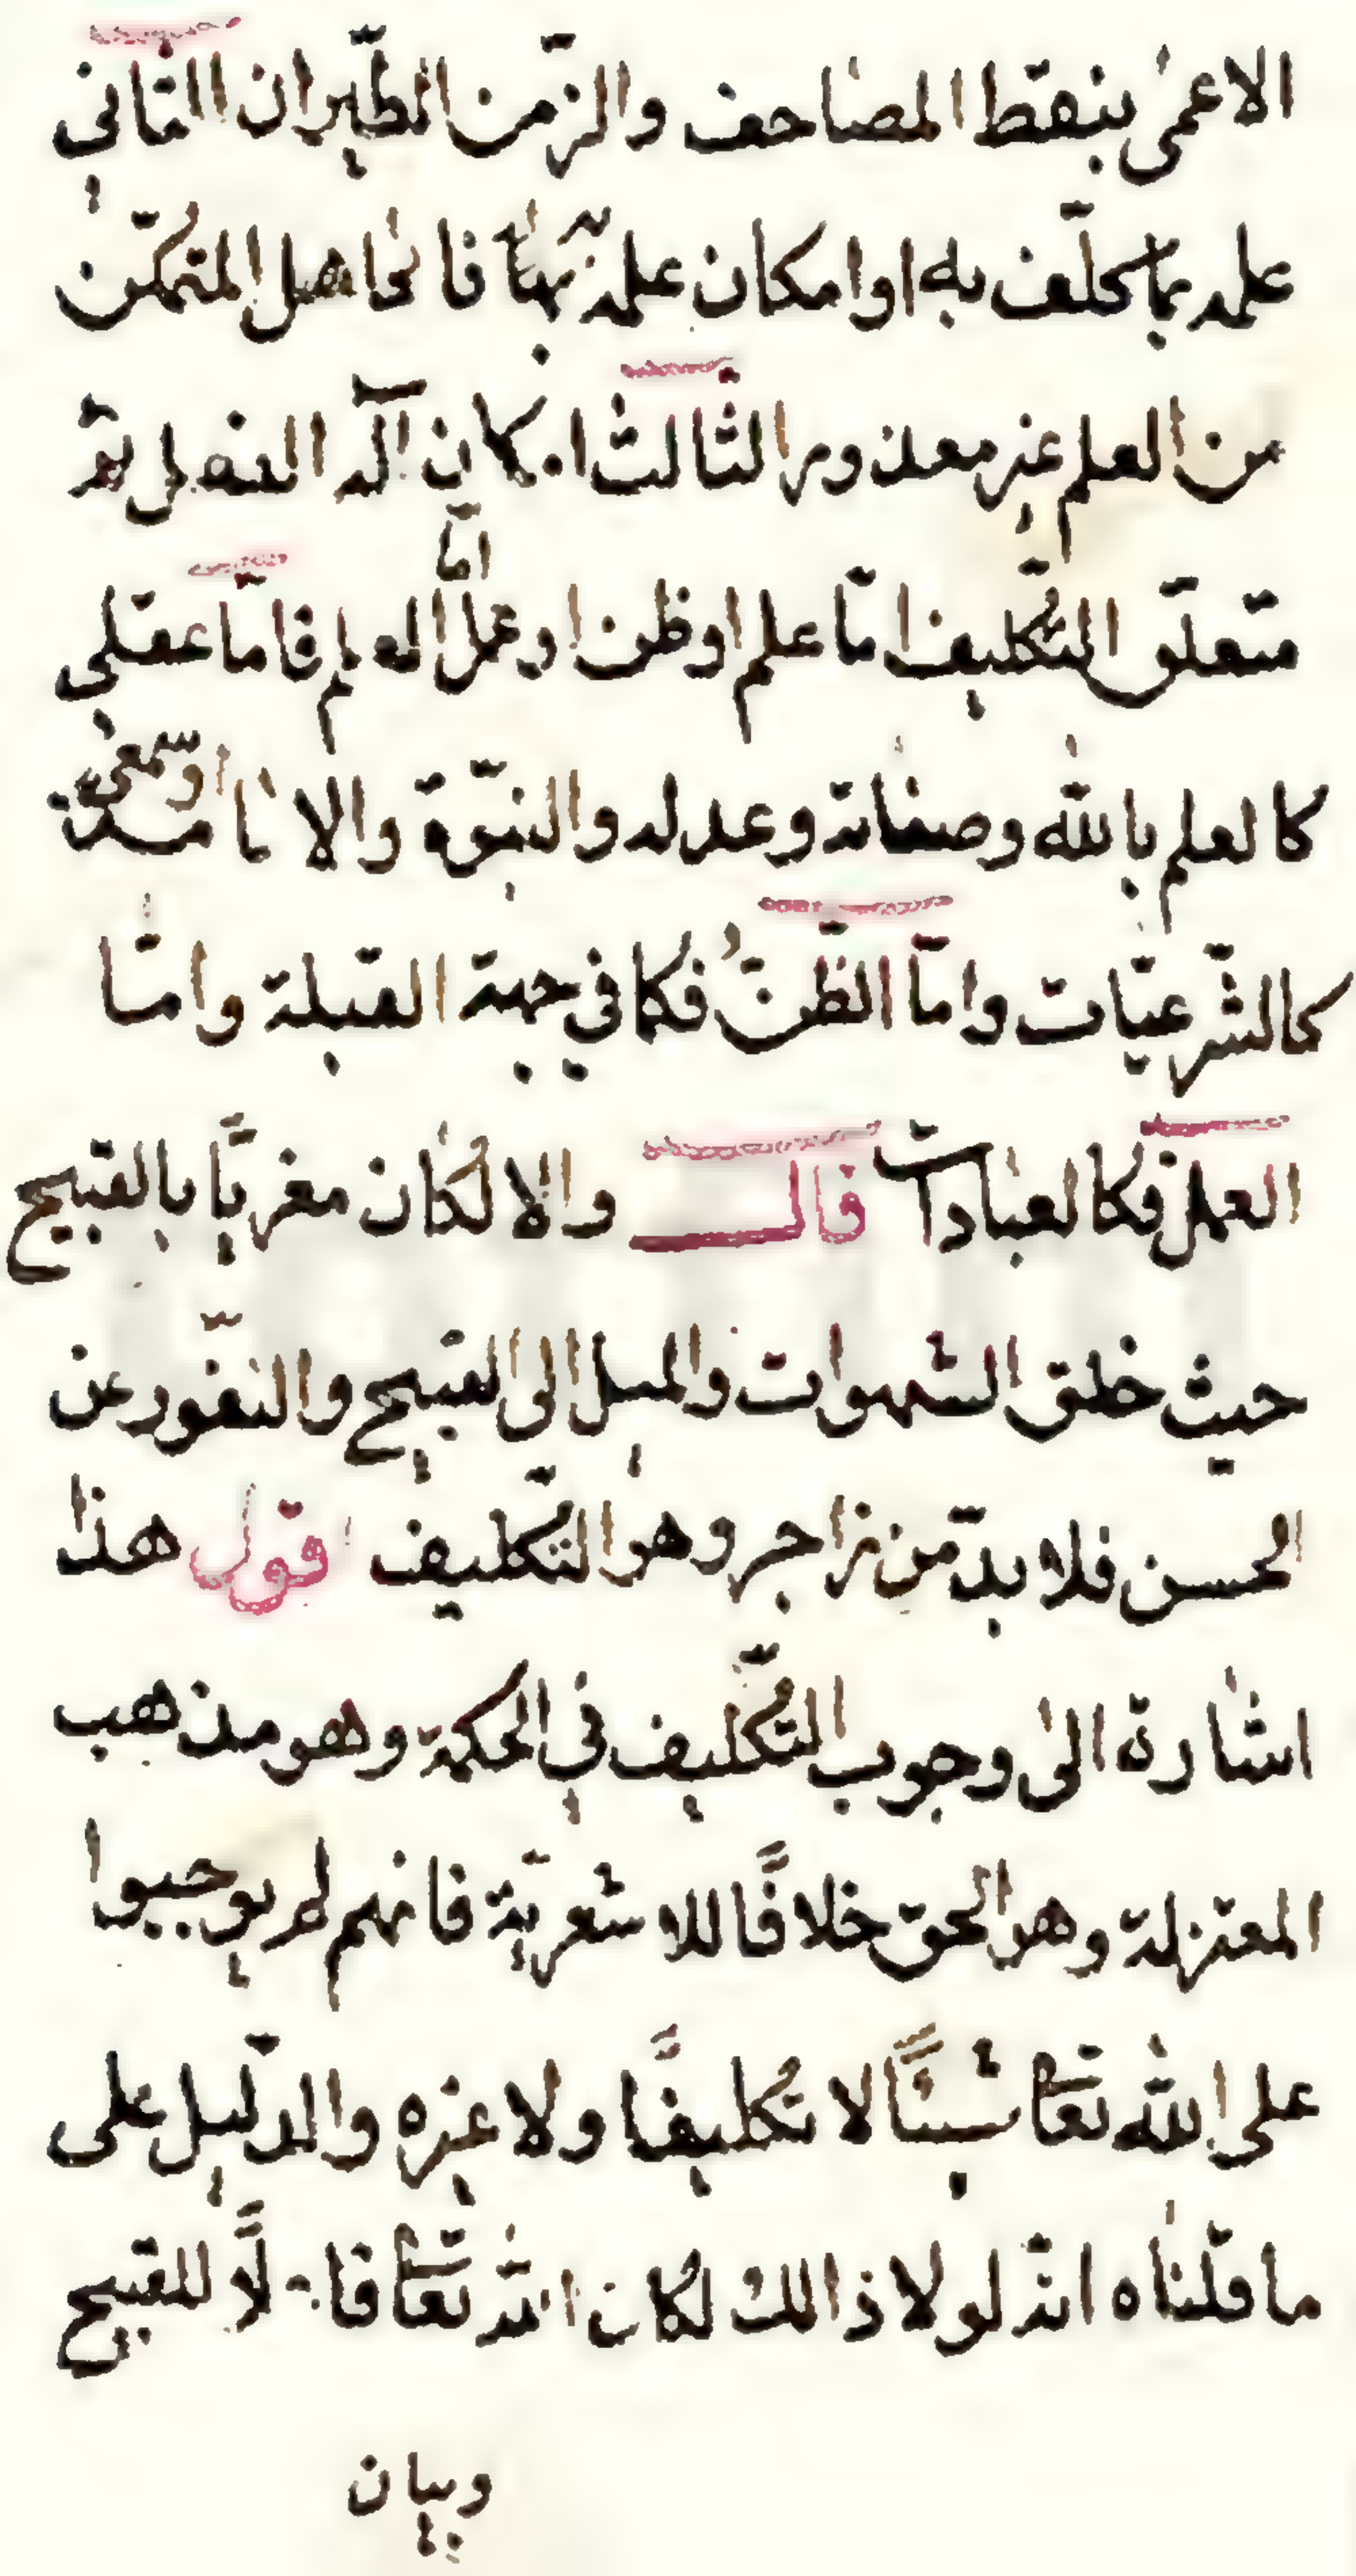 الاعمى بنقط المصاحف والزّمن الطّيران الثاني
علمه بما كلّف به او امكان علمه به فالجاهل المتمكّن
من العلم غير معذور الثالث امكان آلة الفعل ثمّ
متعلّق التّكليف امّا علم او ظن او عمل امّا العلم فامّا عقلى
كالعلم بالله وصفاته وعدله والنبوّة والامامة او سمعى
كالشّرعيّات وامّا الظّنّ فكما في جهة القبلة وامّا
العمل فكالعبادات قال والا لكان مغريًّا بالقبيح
حيث خلق الشهوات والميل الى القبيح والنّفور عن
الحسن فلا بدّ من زاجر وهو التّكليف اقول هذا
اشارة الى وجوب التّكليف في الحكمة وهو مذهب
المعتزلة وهو الحق خلافًا للاشعريّة فانهم لم يوجبوا
على الله تعا شيئًا لا تكليفًا ولا غيره والدّليل على
ما قلناه انّه لولا ذالك لكان الله تعا فاعلًا للقبيح
وبيان